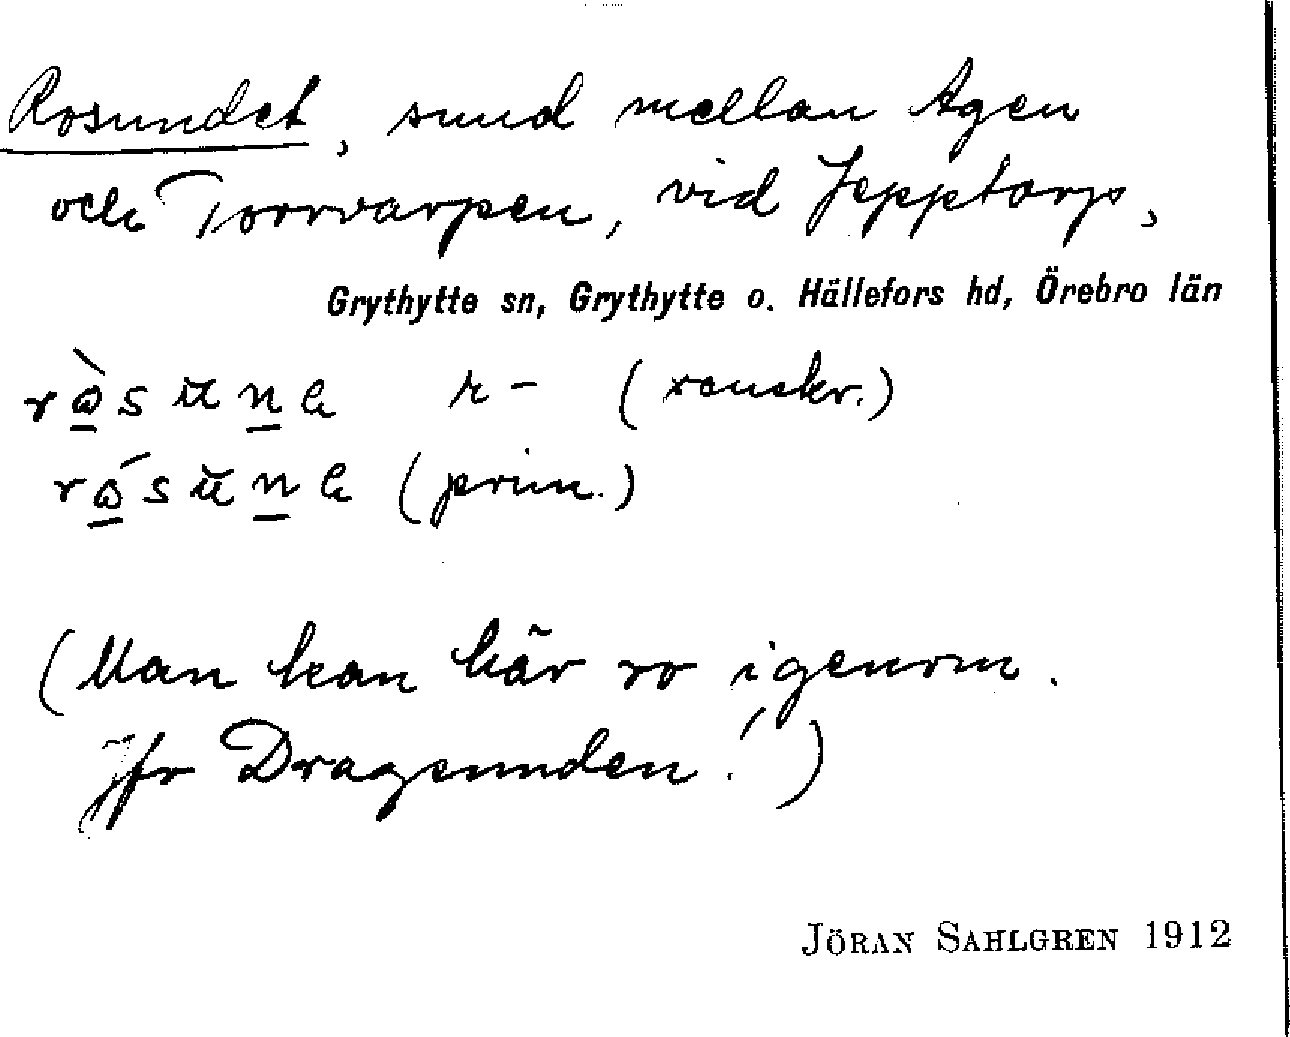 Rosundet, sund mellan Agen
och Torrvarpen, vid Jepptorp,
Grythytte sn, Grythytte o. Hällefors hd, Örebro län
r- (renskr.)
(prim.)
(Man kan här ro igenom.
Jfr Dragsunden!)
JÖRAN SAHLGREN 1912